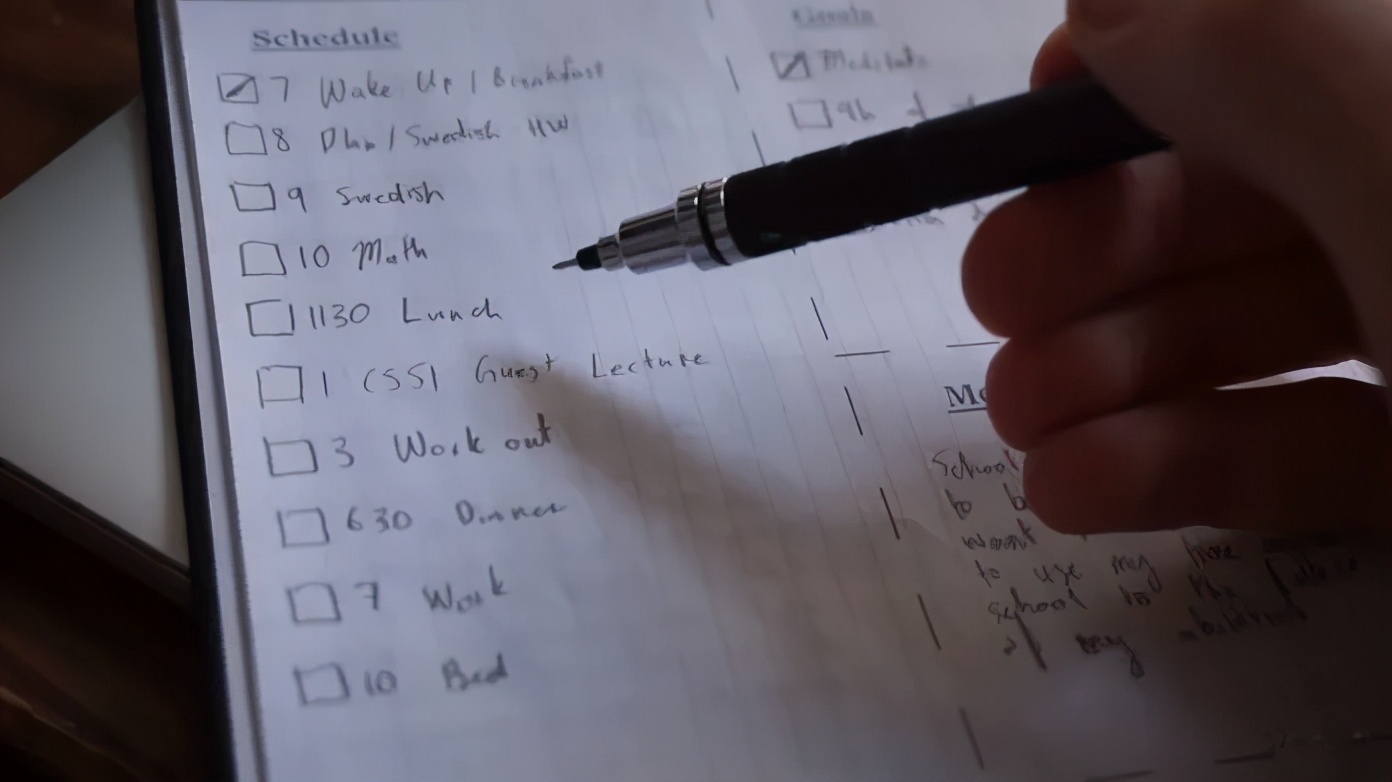 Schedule
7 Wake Up / Breakfast
8 Plan / Swedish HW
9 Swedish
10 Math
1130 Lunch
1 CSSI Guest Lecture
3 Work out
630 Dinner
7 Work
10 Bed
Goals
Meditate
9h
School
to
want
to use my
school to the
of my